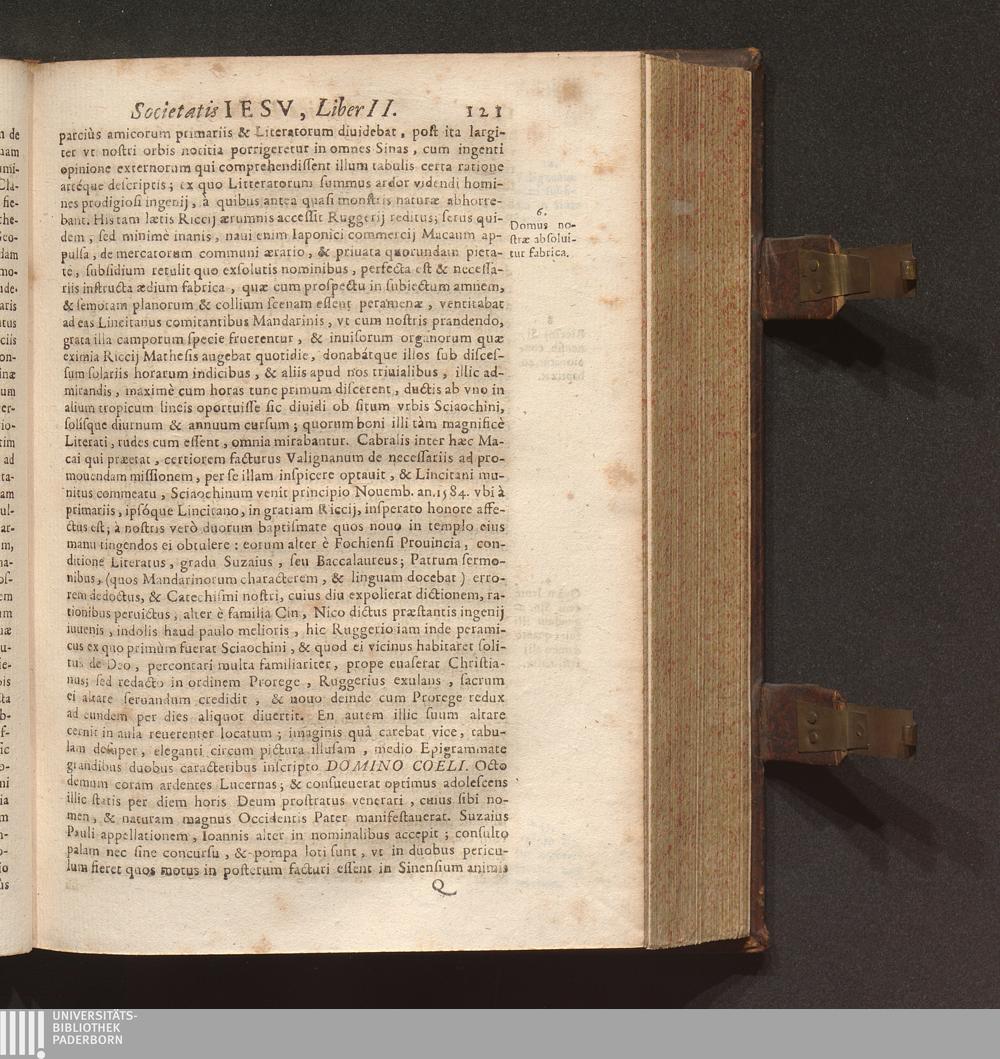 Societatis IESV, Liber II. 121
parciùs amicorum primariis & Literatorum diuidebat, post ita largi-
ter vt nostri orbis notitia porrigeretur in omnes Sinas, cum ingenti
opinione externorum qui comprehendissent illum tabulis certa ratione
artéque descriptis; ex quo Litteratorum summus ardor videndi homi-
nes prodigiosi ingenij, à quibus antea quasi monstris naturæ abhorre-
bant. His tam lætis Riccij ærumnis accessit Ruggerij reditus; serus qui-
dem, sed minimè inanis, naui enim Iaponici commercij Macaum ap-
pulsa, de mercatorum communi ærario, & priuata quorundam pieta-
te, subsidium retulit quo exsolutis nominibus, perfecta est & necessa-
riis instructa ædium fabrica, quæ cum prospectu in subiectum amnem,
& semotam planorum & collium scenam essent peramenæ, ventitabat
ad eas Lincitanus comitantibus Mandarinis, vt cum nostris prandendo,
grata illa camporum specie fruerentur, & inuisorum organorum quæ
eximia Riccij Mathesis augebat quotidie, donabátque illos sub disces-
sum solariis horarum indicibus, & aliis apud nos triuialibus, illic ad-
mirandis, maximè cum horas tunc primum discerent, ductis ab vno in
alium tropicum lineis oportuisse sic diuidi ob situm vrbis Sciaochini,
solisque diurnum & annuum cursum; quorum boni illi tàm magnificè
Literati, rudes cum essent, omnia mirabantur. Cabralis inter hæc Ma-
cai qui præerat, certiorem facturus Valignanum de necessariis ad pro-
mouendam missionem, per se illam inspicere optauit, & Lincitani mu-
nitus commeatu, Sciaochinum venit principio Nouemb. an. 1584. vbi à
primariis, ipsóque Lincitano, in gratiam Riccij, insperato honore affe-
ctus est; à nostris verò duorum baptismate quos nouo in templo eius
manu tingendos ei obtulere: eorum alter è Fochiensi Prouincia, con-
ditione Literatus, gradu Suzaius, seu Baccalaureus; Patrum sermo-
nibus, (quos Mandarinorum characterem, & linguam docebat) erro-
rem dedoctus, & Catechismi nostri, cuius diu expolierat dictionem, ra-
tionibus peruictus, alter è familia Cin, Nico dictus præstantis ingenij
iuuenis, indolis haud paulo melioris, hic Ruggerio iam inde perami-
cus ex quo primùm fuerat Sciaochini, & quod ei vicinus habitaret soli-
tus de Deo, percontari multa familiariter, prope euaserat Christia-
nus; sed redacto in ordinem Prorege, Ruggerius exulans, sacrum
ei altare seruandum credidit, & nouo deinde cum Prorege redux
ad eundem per dies aliquot diuertit. En autem illic suum altare
cernit in aula reuerenter locatum; imaginis quâ carebat vice, tabu-
lam desuper, eleganti circum pictura illusam, medio Epigrammate
grandibus duobus caracteribus inscripto DOMINO COELI. Octo
demum coram ardentes Lucernas; & consueuerat optimus adolescens
illic statis per diem horis Deum prostratus venerari, cuius sibi no-
men, & naturam magnus Occidentis Pater manifestauerat. Suzaius
Pauli appellationem, Ioannis alter in nominalibus accepit; consulto
palam nec sine concursu, & pompa loti sunt, vt in duobus pericu-
lum fieret quos motus in posterum facturi essent in Sinensium animis
Q
6.
Domus no-
stræ absolui-
tur fabrica.
UNIVERSITÄTS-
BIBLIOTHEK
PADERBORN